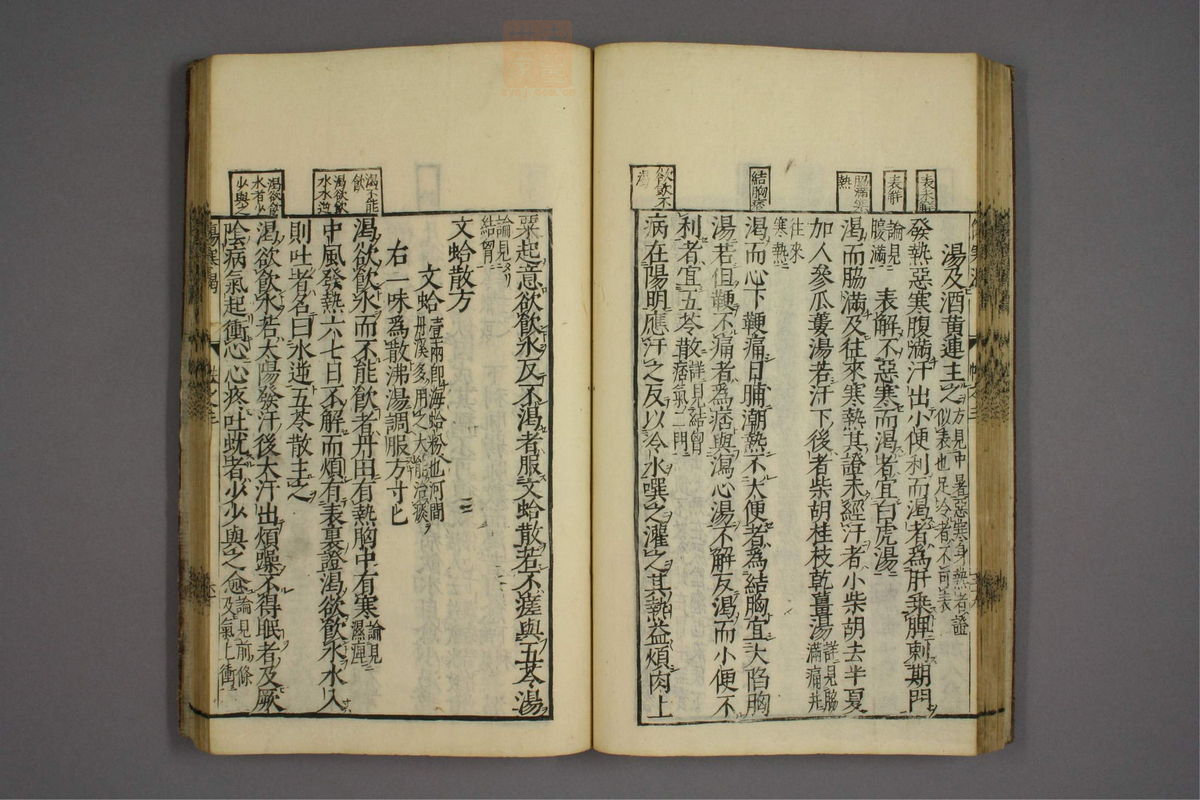 表未解
表解
脇滿寒
熱
結胸痞
飲飲不
渴
湯及酒黃連主之方見中暑惡寒身熱者證
似表也足冷者不可表
發熱惡寒腹滿汗出小便利而渴者爲肝乘脾刺期門
論見
腹滿
表解不惡寒而渴者宜白虎湯
渴而脇滿及往來寒熱其證未經汗者小柴胡去半夏
加人參瓜蔞湯若汗下後者柴胡桂枝乾薑湯詳見脇
滿痛幷
往來
寒熱
渴而心下鞕痛日晡潮熱不大便者爲結胸宜大陷胸
湯若但鞕不痛者爲痞與瀉心湯不解反渴而小便不
利者宜五苓散詳見結胷
痞氣二門
病在陽明應汗之反以冷水噀之灌之其熱益煩肉上
渴不能
飲
渴欲飲
水水逆
渴欲飲
水者少
少與之
粟起意欲飲水反不渴者服文蛤散若不瘥與五苓湯
論見
結胷
文蛤散方
文蛤壹兩卽海蛤粉也河間
丹溪多用之大能治痰
右一味爲散沸湯調服方寸匕
渴欲飲水而不能飲者丹田有熱胸中有寒論見
濕痺
中風發熱六七日不解而煩有表裏證渴欲飲水水入
則吐者名曰水逆五苓散主之
渴欲飲水若太陽發汗後大汗出煩躁不得眠者及厥
陰病氣起衝心心疼吐蚘者少少與之愈論見前條
及氣上衝
傷寒渴